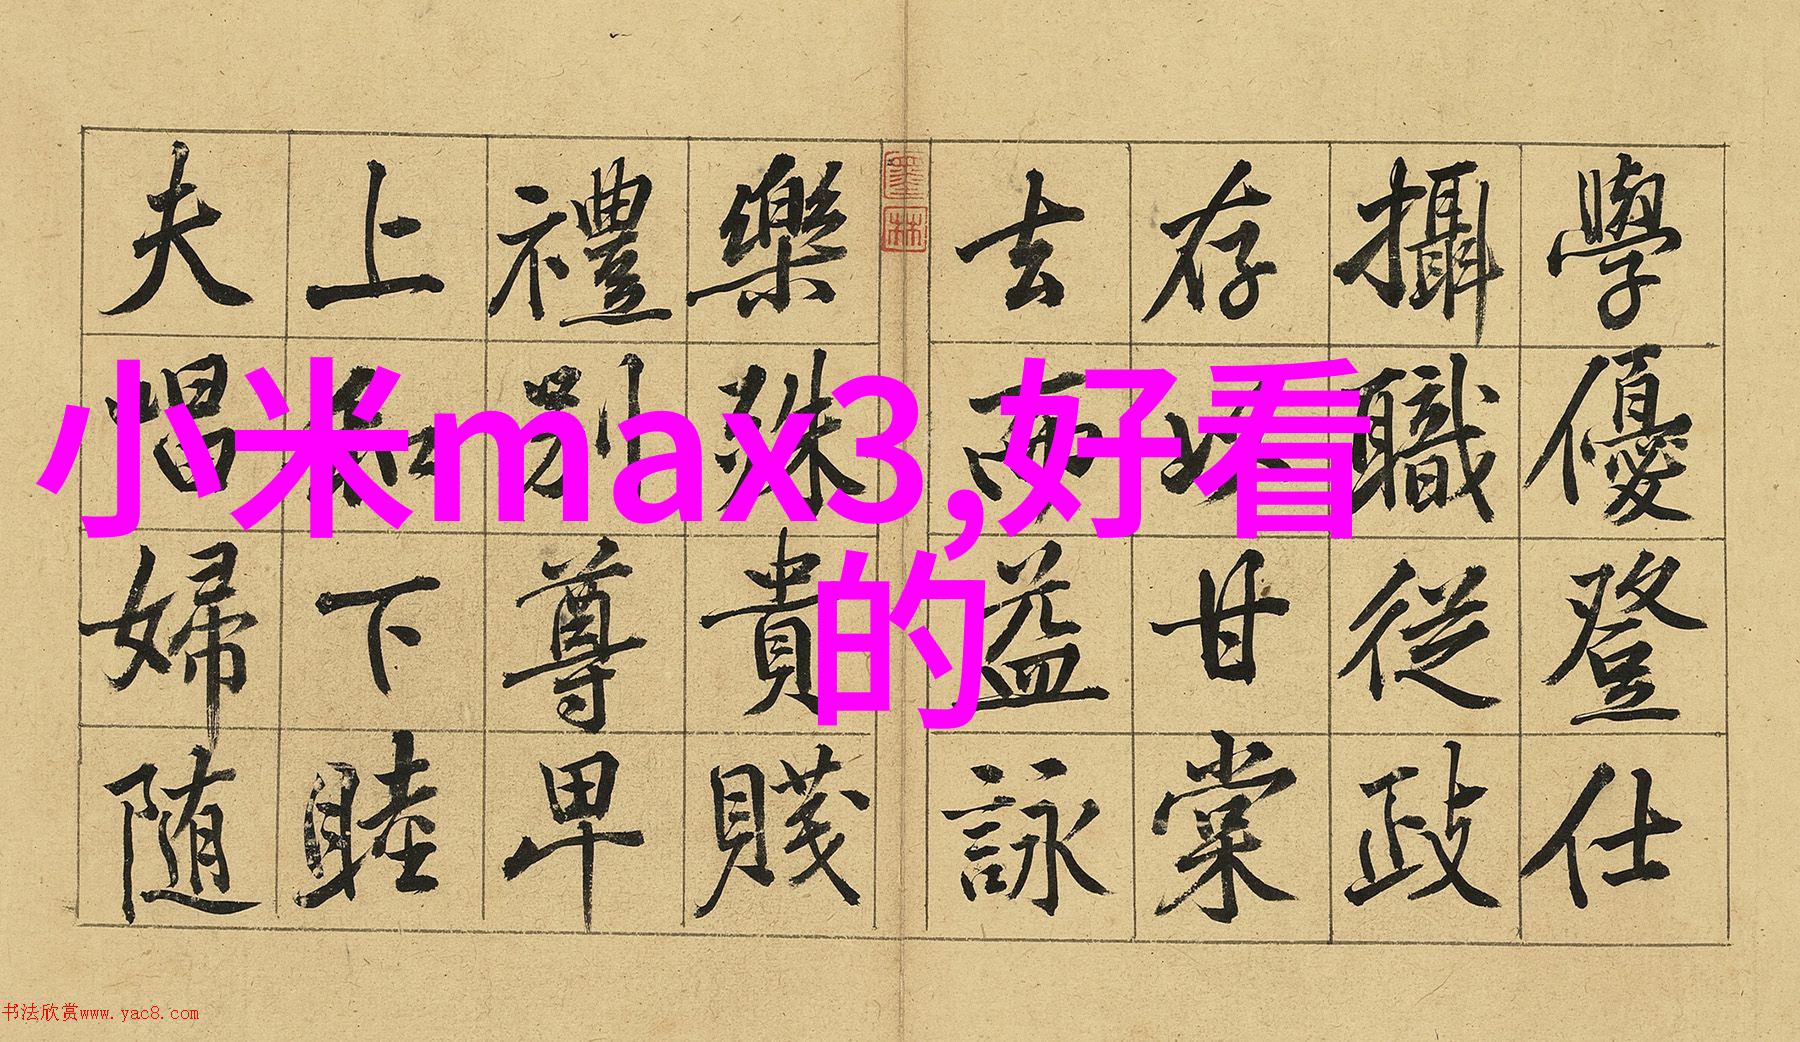 學優登仕
攝職從政
存以甘棠
去而益詠
墨林
樂殊貴賤
禮別尊卑
上和下睦
夫唱婦随
小米max3,好看
的
书法欣赏www.yac8.com